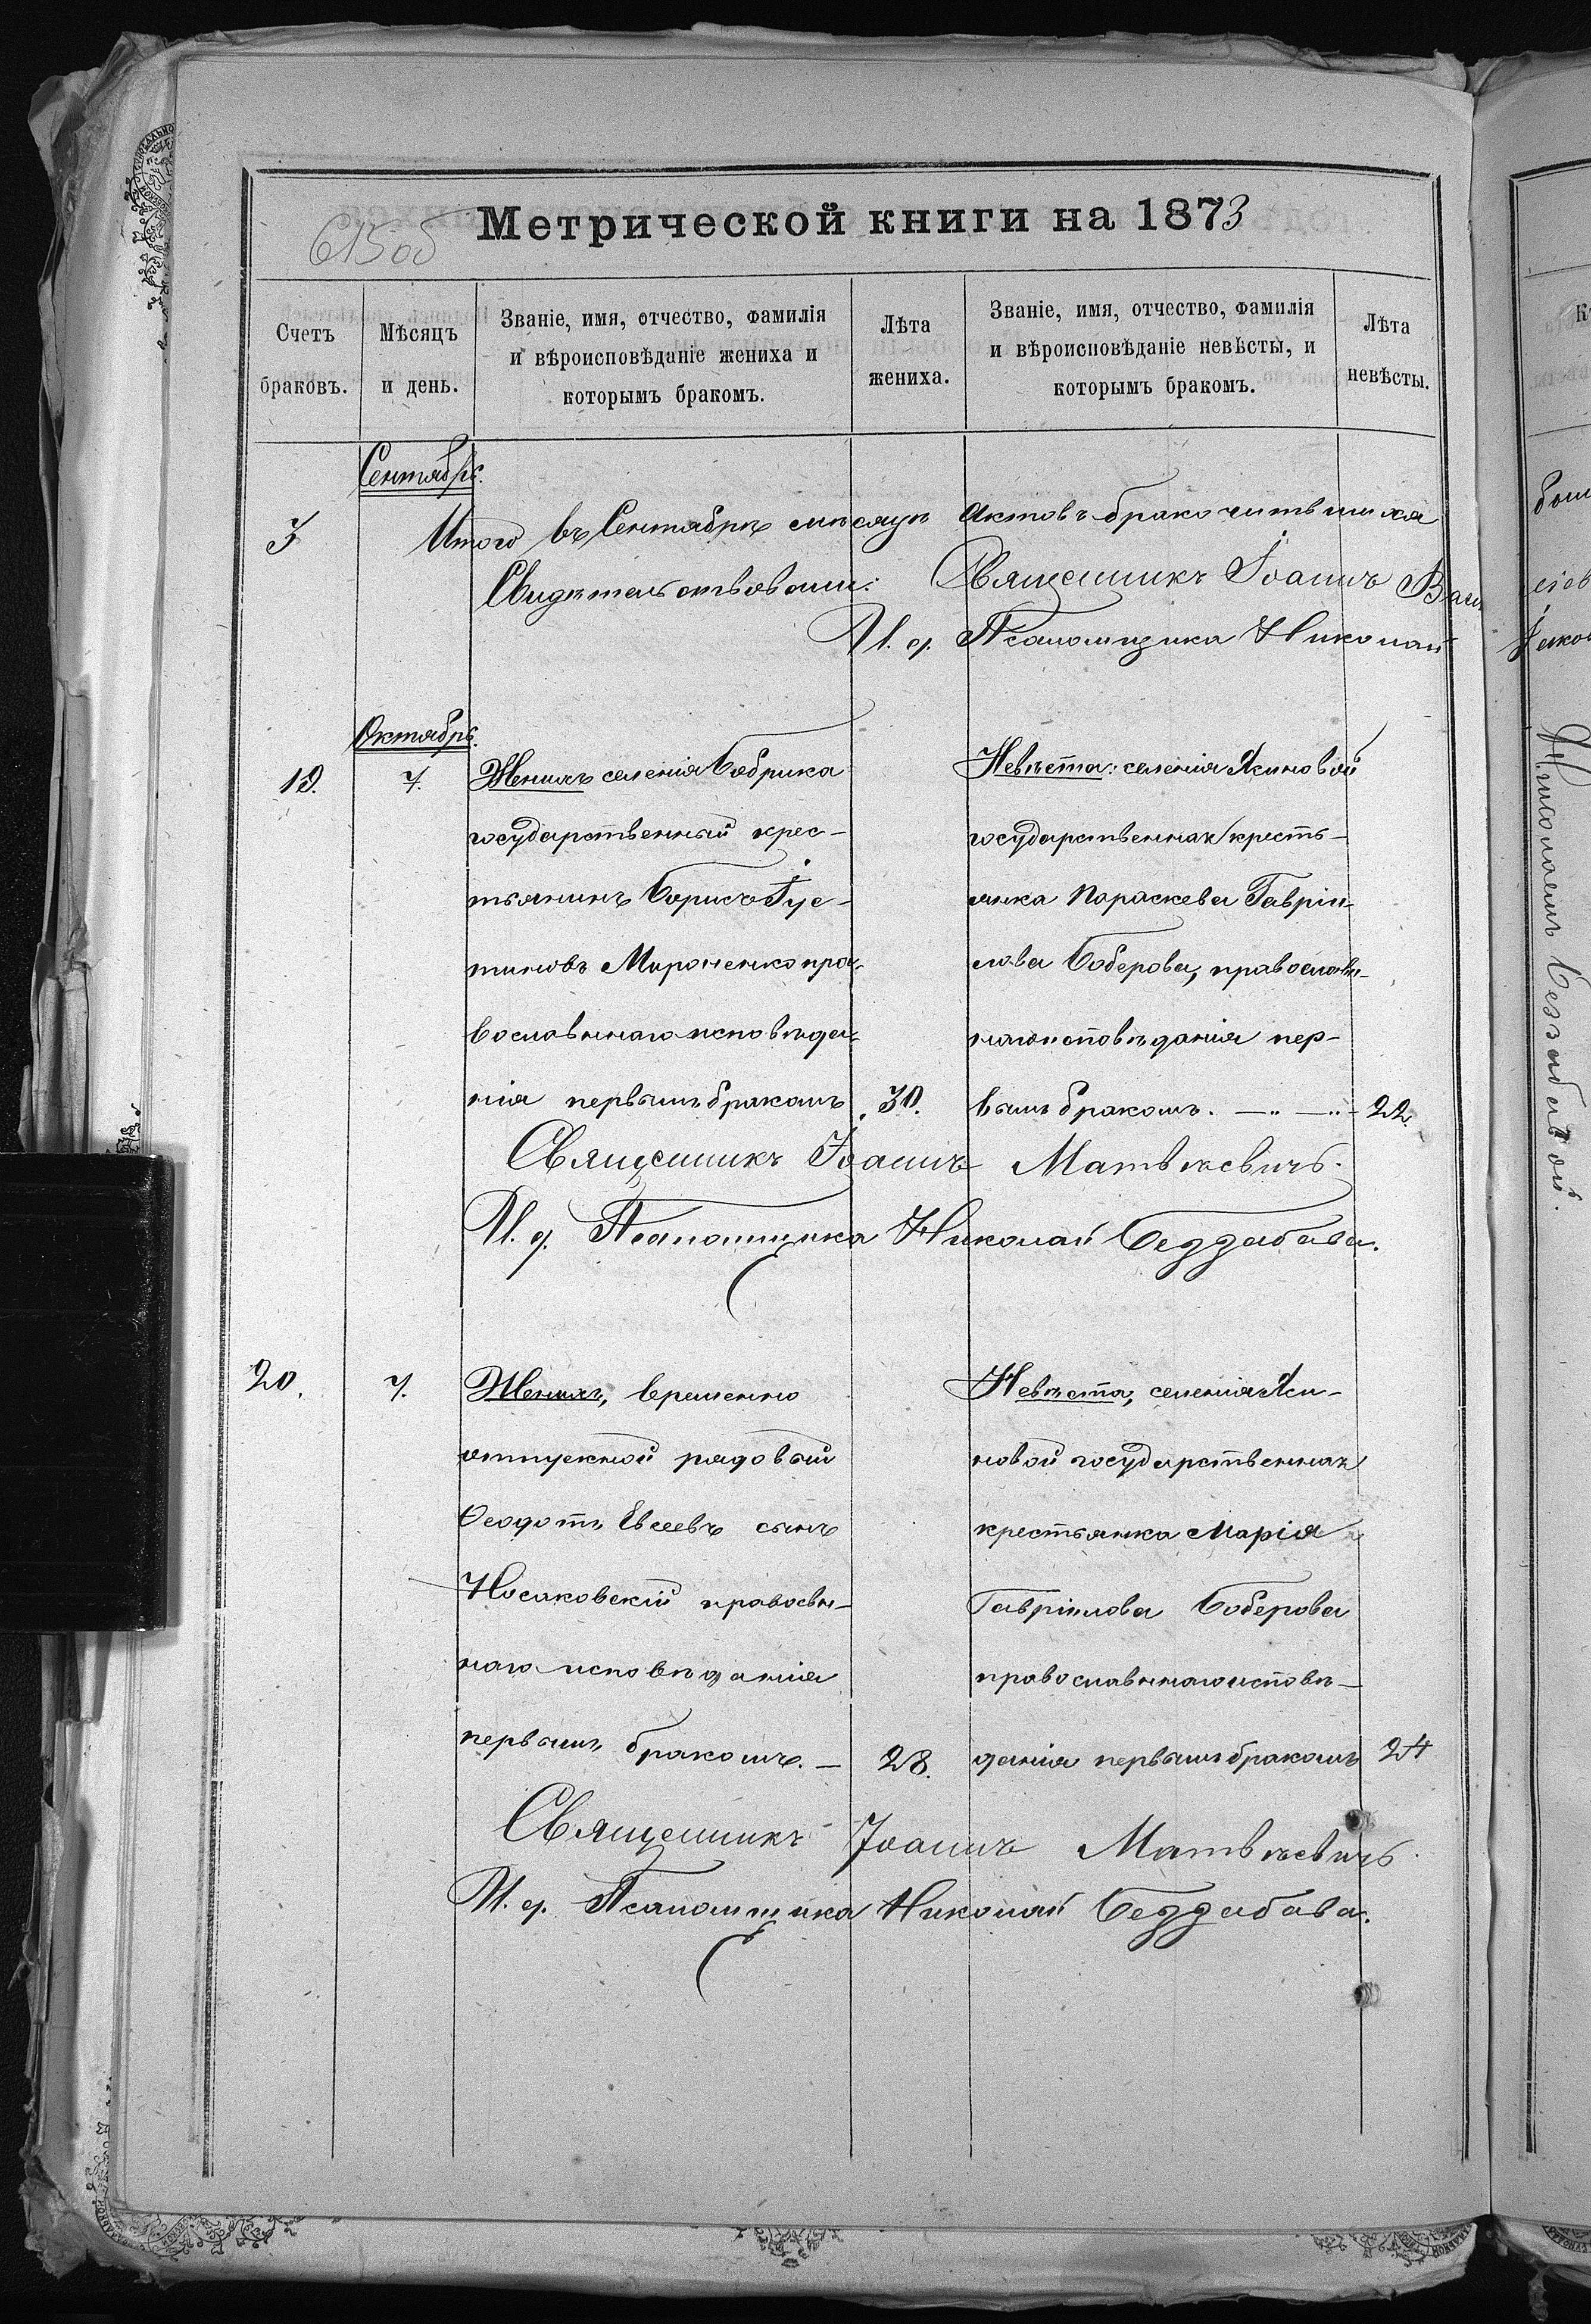 615об
Метрической книги на 1873
Счетъ браковъ.
Мѣсяцъ и день.
Званіе, имя, отчество, фамилія
и вѣроисповѣданіе жениха и
которымъ бракомъ.
Лѣта
жениха.
Званіе, имя, отчество, фамилія
и вѣроисповѣданіе невѣсты, и
которымъ бракомъ.
Лѣта
невѣсты.
Сентябрь.
3 Итого въ Сентябрѣ мѣсяцѣ актовъ
Свидѣтельствовали: Священникъ Іоаннъ
И. д. Псаломщика Николай
Октябрь.
19. 7. Женихъ селенія Бобрика
государственный крес-
тьянинъ Борисъ Іус-
тиновъ Мироненко пра-
вославнаго исповѣда-
нія первымъ бракомъ 30.
Невѣста: селенія Ясиновой
государственная кресть-
янка Параскева Гавріи-
лова Боберова, православ-
наго исповѣданія пер-
вымъ бракомъ. 22.
Священникъ Іоаннъ Матвѣевичъ.
И. д. Псаломщика Николай Беззабава.
20. 7. Женихъ, временно
отпускной рядовый
Ѳеодотъ Евсеевъ сынъ
Носаковскій правосв-
наго исповѣданія
первымъ бракомъ. — 28.
Невѣста, селенія Яси-
новой государственная
крестьянка Марія
Гавріилова Боберова
православнаго исповѣ-
данія первымъ бракомъ 24
Священникъ Іоаннъ Матвѣевичъ.
И. д. Псаломщика Николай Беззабава.
Николаемъ Беззабавой.